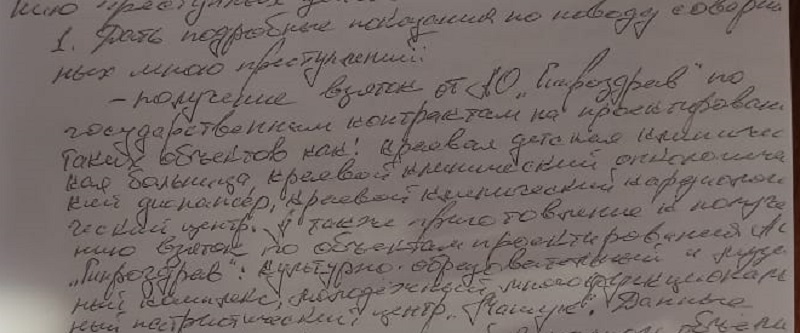 нию преступных
1. Дать подробные показания по поводу соверш
ных мною преступлений:
- получение взяток от АО "Гипроздрав" по
государственным контрактам на проектирован
таких объектов как: краевая детская клиничес
кая больница, краевой клинический онкологиче
кий диспансер, краевой клинический кардиологи
ческий центр. А также приготовление к получе
нию взяток по объектам проектирований АО
"Гипроздрав": культурно-образовательный и музе
ный комплекс, молодёжный многофункциональ
ный патриотический центр "Машук". Данные